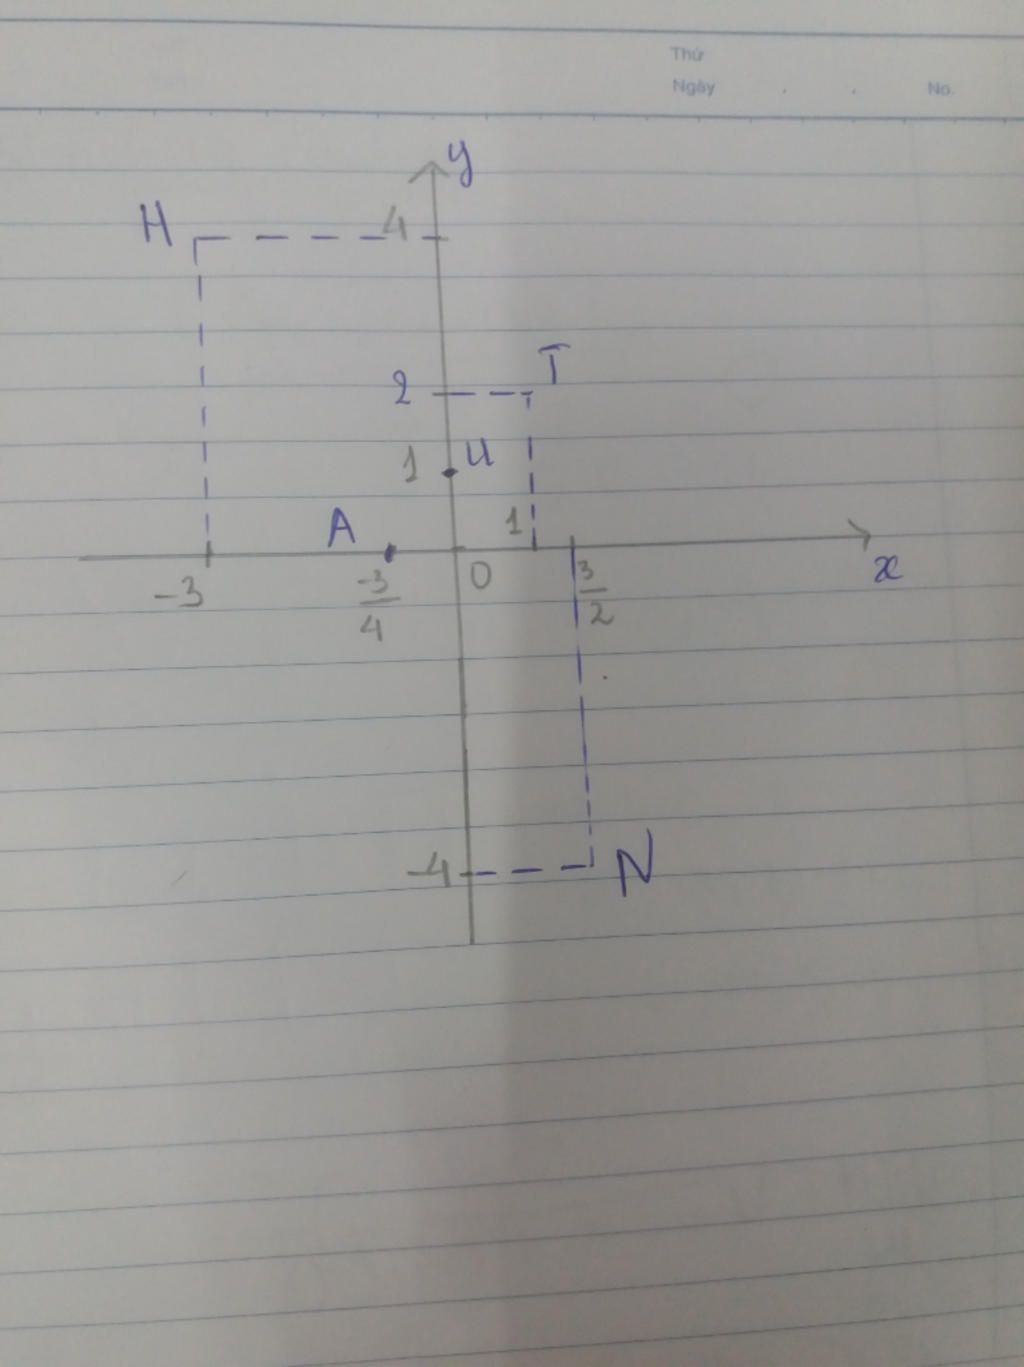 Thứ
Ngày . . No.
y
H 4
T
2
1 U
A 1
-3 -3/4 0 3/2 x
-4 N